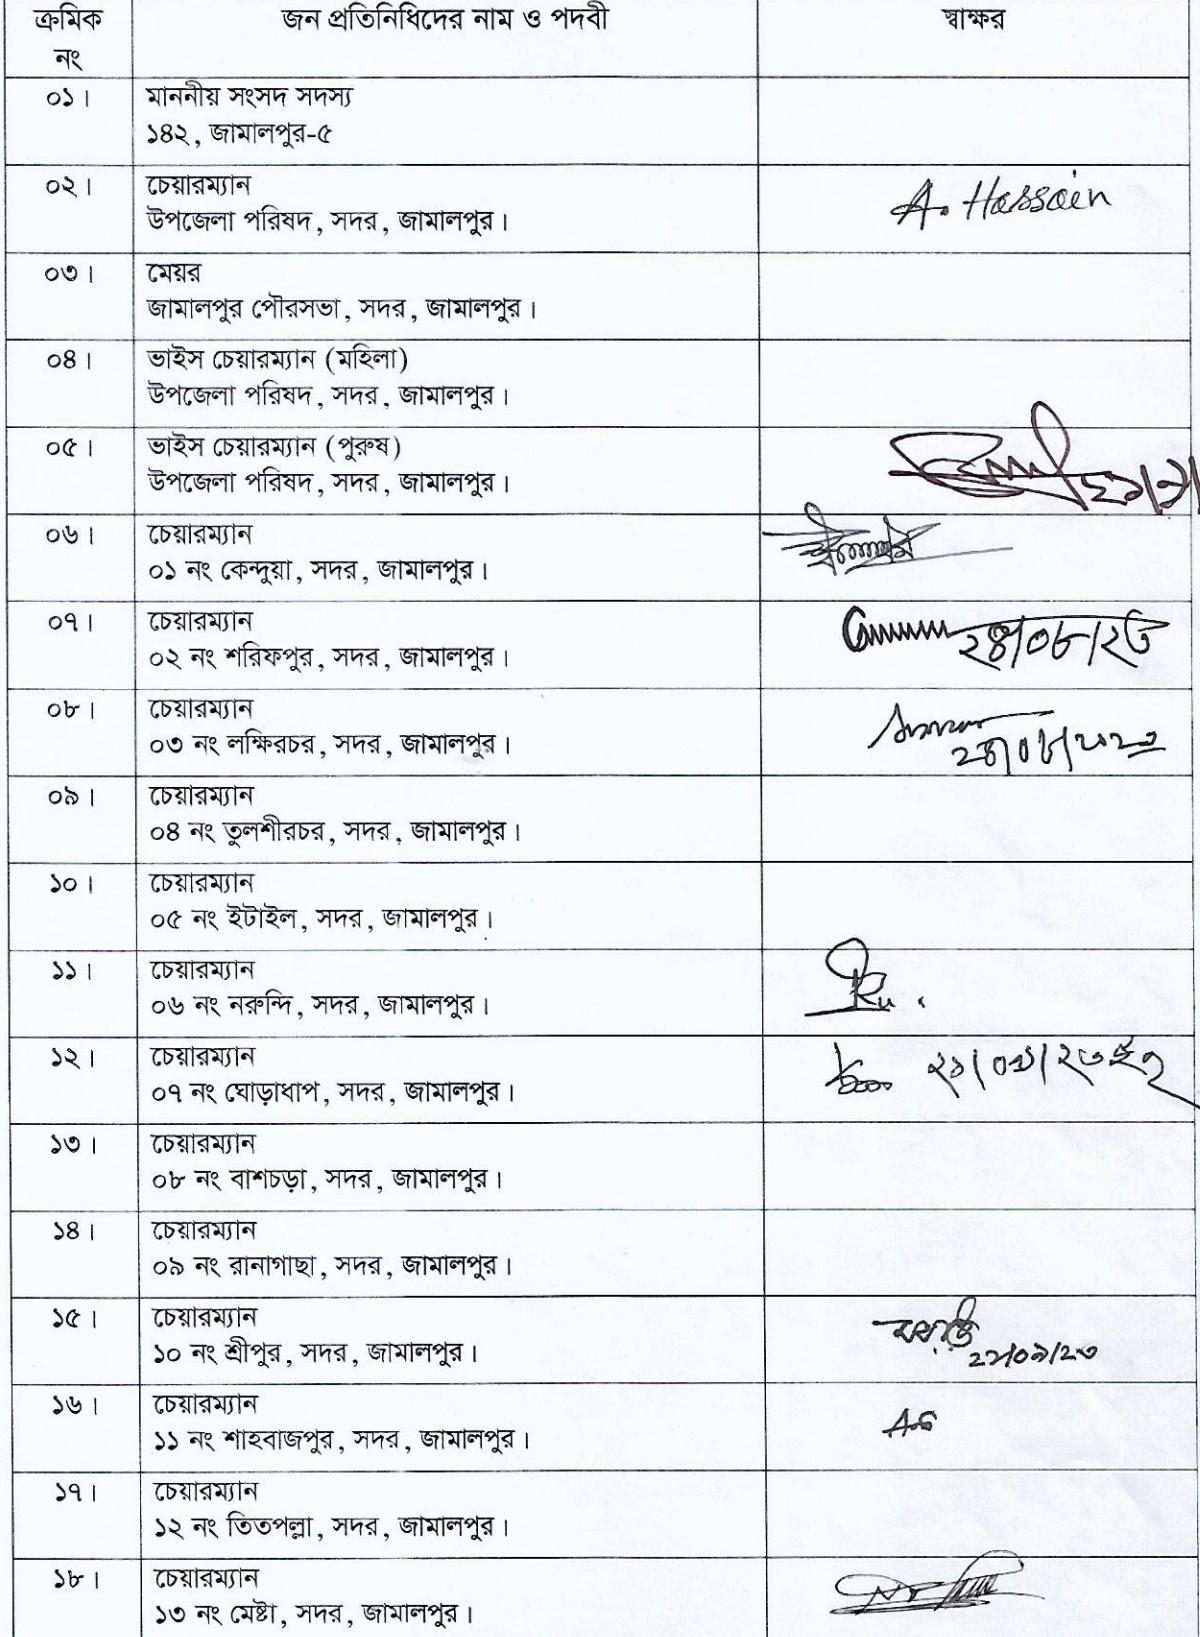 ক্রমিক নং জন প্রতিনিধিদের নাম ও পদবী স্বাক্ষর
০১। মাননীয় সংসদ সদস্য
১৪২, জামালপুর-৫
০২। চেয়ারম্যান
উপজেলা পরিষদ, সদর, জামালপুর।
A. Hassain
০৩। মেয়র
জামালপুর পৌরসভা, সদর, জামালপুর।
০৪। ভাইস চেয়ারম্যান (মহিলা)
উপজেলা পরিষদ, সদর, জামালপুর।
০৫। ভাইস চেয়ারম্যান (পুরুষ)
উপজেলা পরিষদ, সদর, জামালপুর।
০৬। চেয়ারম্যান
০১ নং কেন্দুয়া, সদর, জামালপুর।
০৭। চেয়ারম্যান
০২ নং শরিফপুর, সদর, জামালপুর।
০৮। চেয়ারম্যান
০৩ নং লক্ষিরচর, সদর, জামালপুর।
০৯। চেয়ারম্যান
০৪ নং তুলশীরচর, সদর, জামালপুর।
১০। চেয়ারম্যান
০৫ নং ইটাইল, সদর, জামালপুর।
১১। চেয়ারম্যান
০৬ নং নরুন্দি, সদর, জামালপুর।
১২। চেয়ারম্যান
০৭ নং ঘোড়াধাপ, সদর, জামালপুর।
১৩। চেয়ারম্যান
০৮ নং বাশচড়া, সদর, জামালপুর।
১৪। চেয়ারম্যান
০৯ নং রানাগাছা, সদর, জামালপুর।
১৫। চেয়ারম্যান
১০ নং শ্রীপুর, সদর, জামালপুর।
২২/০৯/২৩
১৬। চেয়ারম্যান
১১ নং শাহবাজপুর, সদর, জামালপুর।
১৭। চেয়ারম্যান
১২ নং তিতপল্লা, সদর, জামালপুর।
১৮। চেয়ারম্যান
১৩ নং মেষ্টা, সদর, জামালপুর।